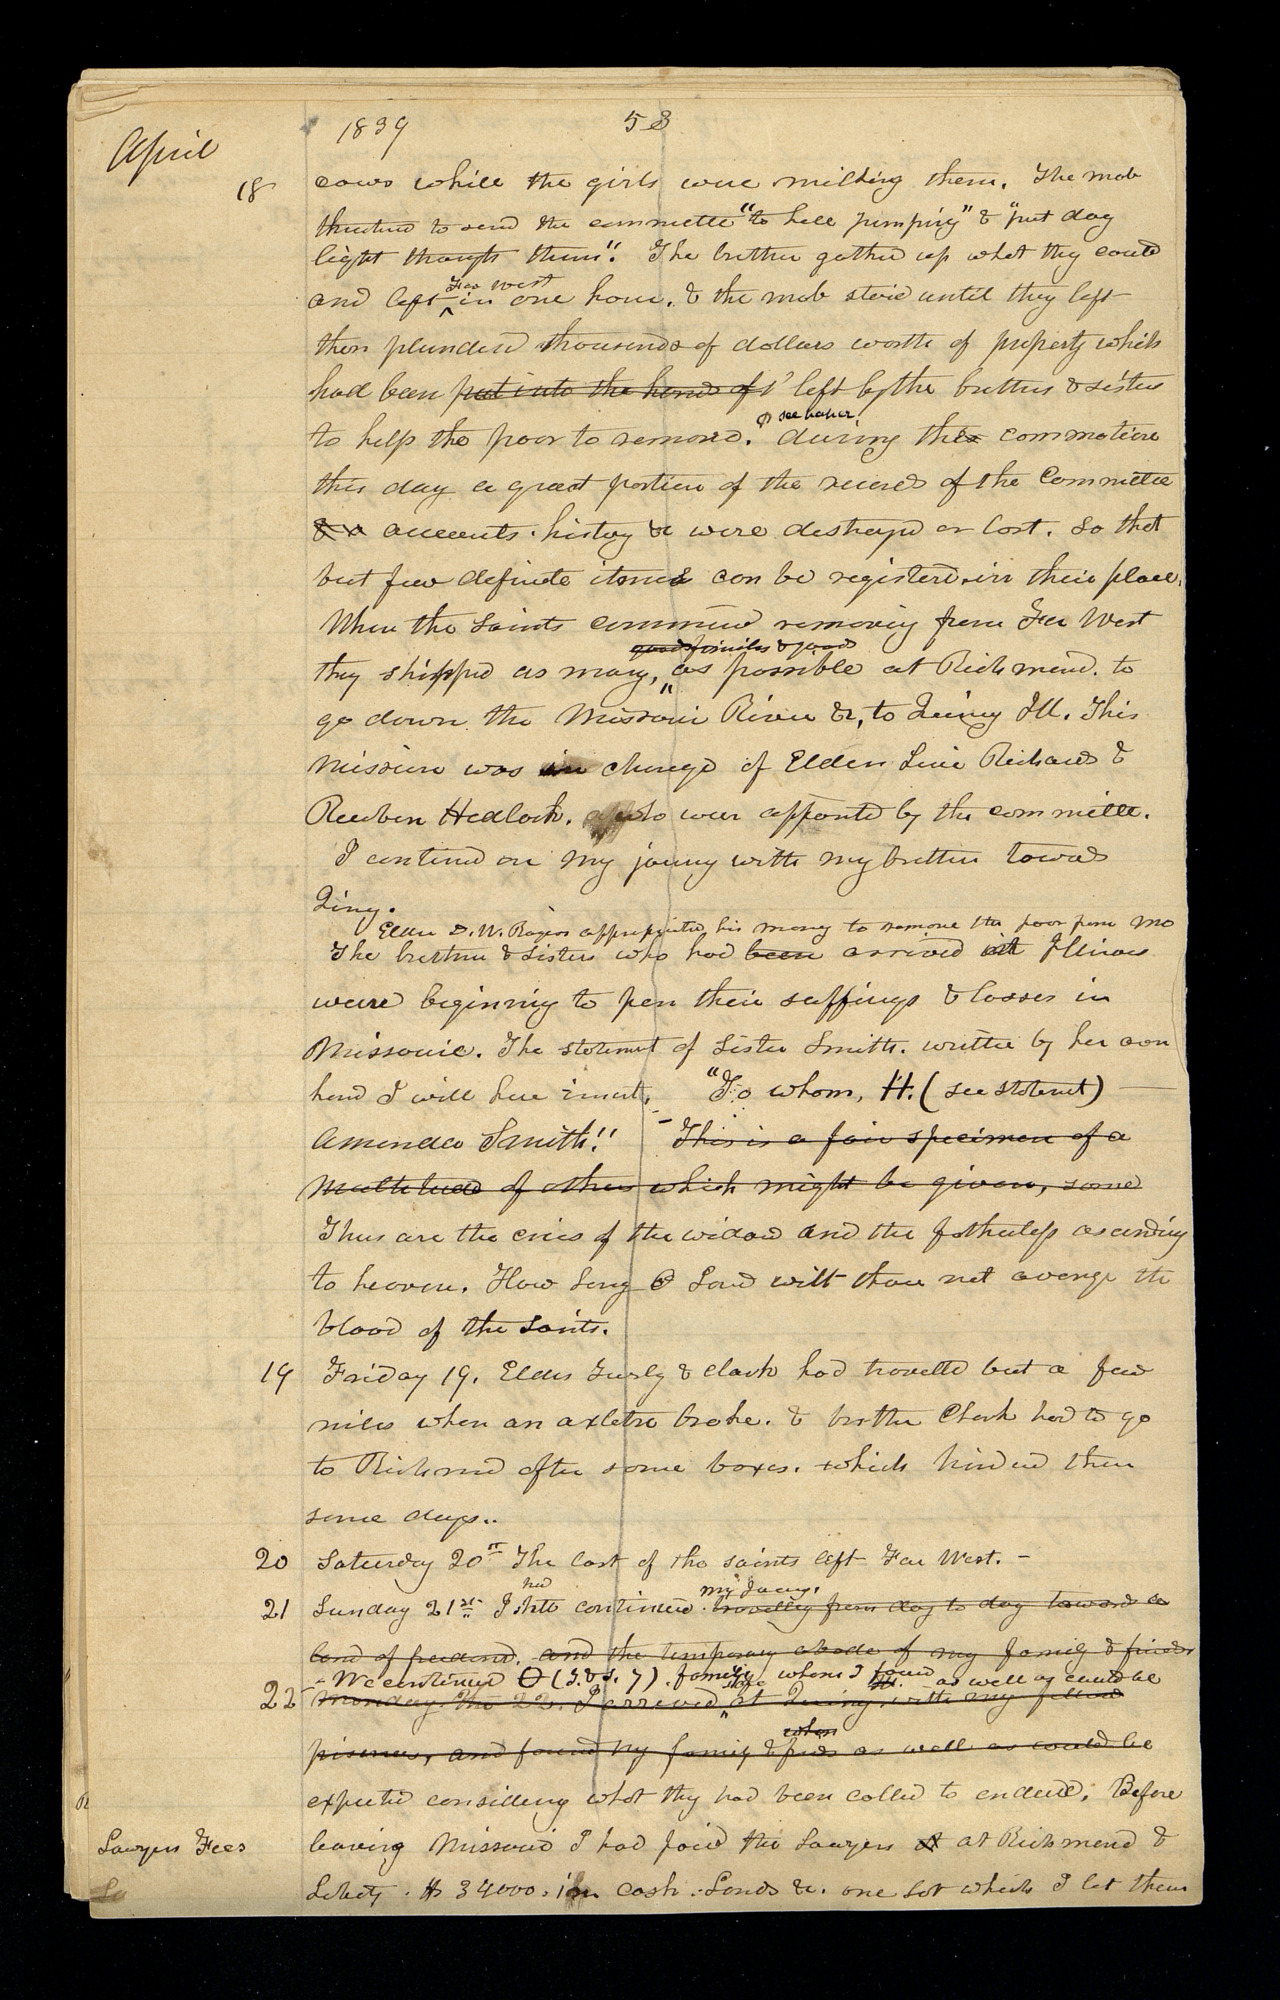 April
1839
53
18
cows while the girls were milking them. The mob
threatend to send the committee "to hell jumping" & "put day
light through them". The brethren gatherd up what they could
Far West
and left in one hour. & the mob staid until they left
then plunderd thousands of dollars worth of property which
had been put into the hands of left by the brethren & sisters
see paper
to help the poor to remove. during this commotion
this day a great portion of the records of the Committee
accounts. history &c were destroyed or lost. So that
but few definite items can be registered in their place.
When the Saints commencd removing from Far West
good families & good
they shipped as many, as possible at Richmond. to
go down the Missouri River &c, to Quincy Ill. This
mission was in charge of Elder Levi Richards &
Reuben Hedlock. who were appointed by the committee.
I continud on my journy with my brethren towards
Quincy.
Elder D. W. Rogers appropriated his money to remove the poor from Mo
The brethren & sisters who had been arrived at Illinois
were beginning to pen their suffrings & losses in
Missouri. The statement of Sister Smith. written by her own
hand I will here insert. "To whom, H. (see statement)
Amanda Smith." This is a fair specimen of a
multitude of others which might be given, some
Thus are the cries of the widow and the fatherless ascending
to heaven. How long O Lord wilt thou not avenge the
blood of the Saints.
19
Friday 19. Elders Turly & Clark had travelld but a few
miles when an axletre broke. & brother Clark had to go
to Richmond after some boxes. which hinderd them
some days..
20
Saturday 20th The last of the saints left Far West. -
my Journy.
21
Sunday 21st I still continued. travelling from day to day towards a
land of freedom. and the temporary abode of my family & friends
- We continued (T. & S. 7). family where I found as well as could be
22
Monday the 22. I arrived safe at Quincy with my fellow
when
prisoners, and found my family & friends as well as could be
expected considering what they had been called to endure. Before
Lawyers Fees
leaving Missouri I had paid the Lawyers at Richmond &
Liberty. $ 34000. in cash. Lands &c. one lot which I let them